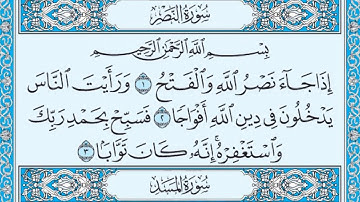 سُورَةُ النَّصْرِ
بِسْمِ اللَّهِ الرَّحْمَٰنِ الرَّحِيمِ
إِذَا جَاءَ نَصْرُ اللَّهِ وَالْفَتْحُ ١ وَرَأَيْتَ النَّاسَ
يَدْخُلُونَ فِي دِينِ اللَّهِ أَفْوَاجًا ٢ فَسَبِّحْ بِحَمْدِ رَبِّكَ
وَاسْتَغْفِرْهُ ۚ إِنَّهُ كَانَ تَوَّابًا ٣
سُورَةُ المَسَدِ